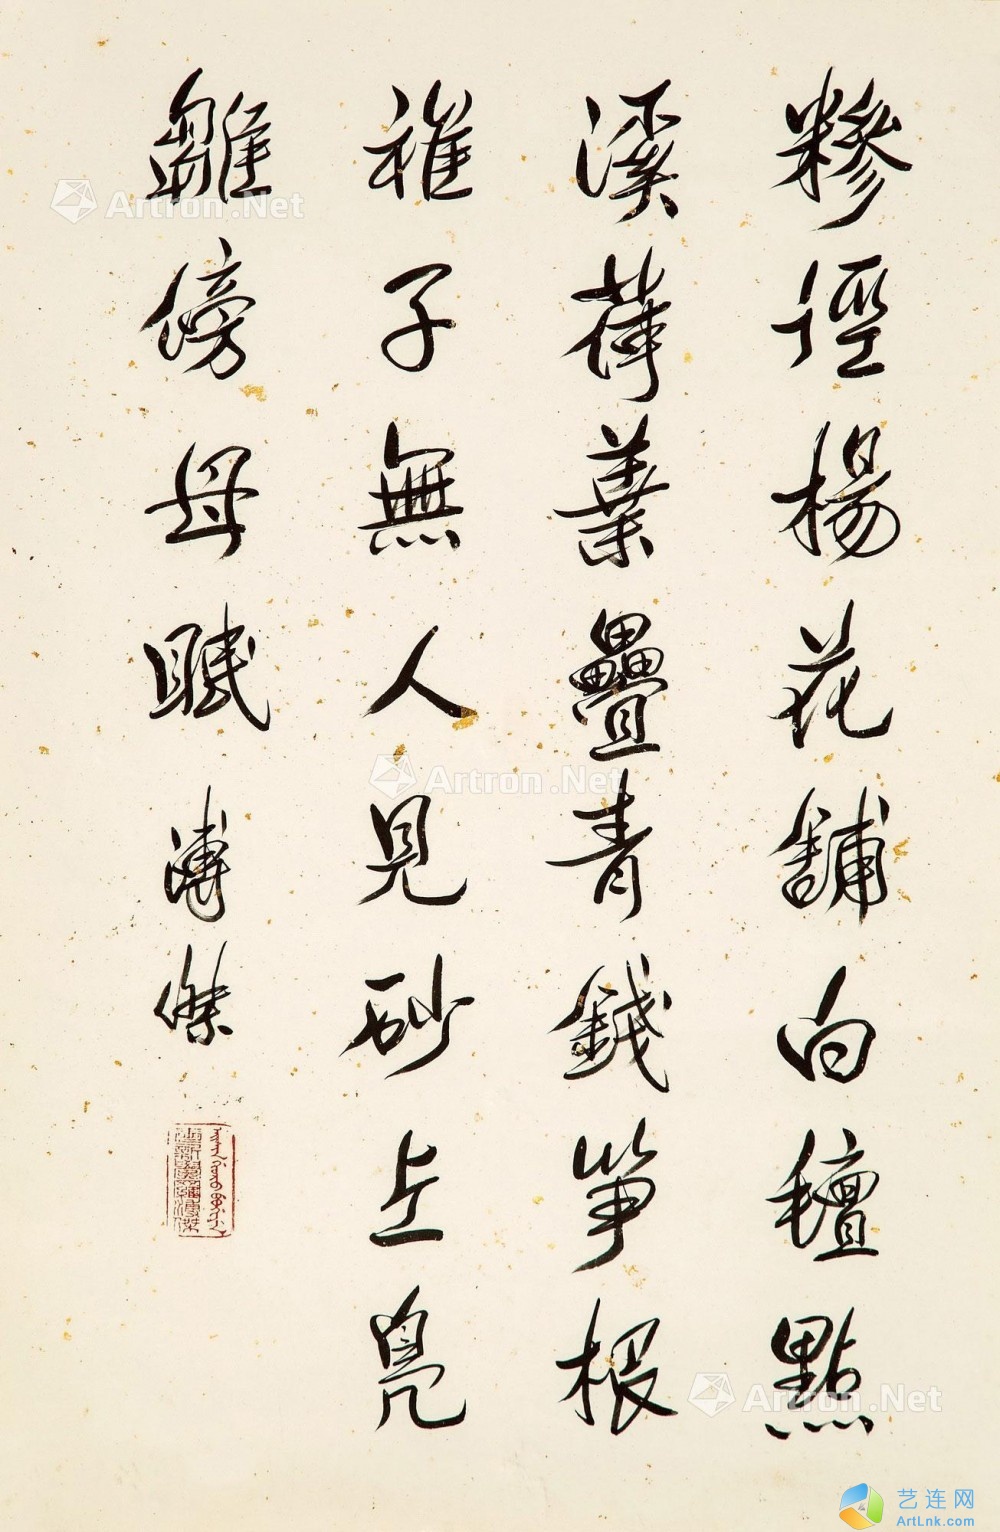 糝徑楊花舖白氈點
溪荷葉疊青錢笋根
稚子無人見砂上鳧
雛傍母眠 溥傑
Artron.Net
Artron.Net
Artron.Net
艺连网
ArtLnk.com